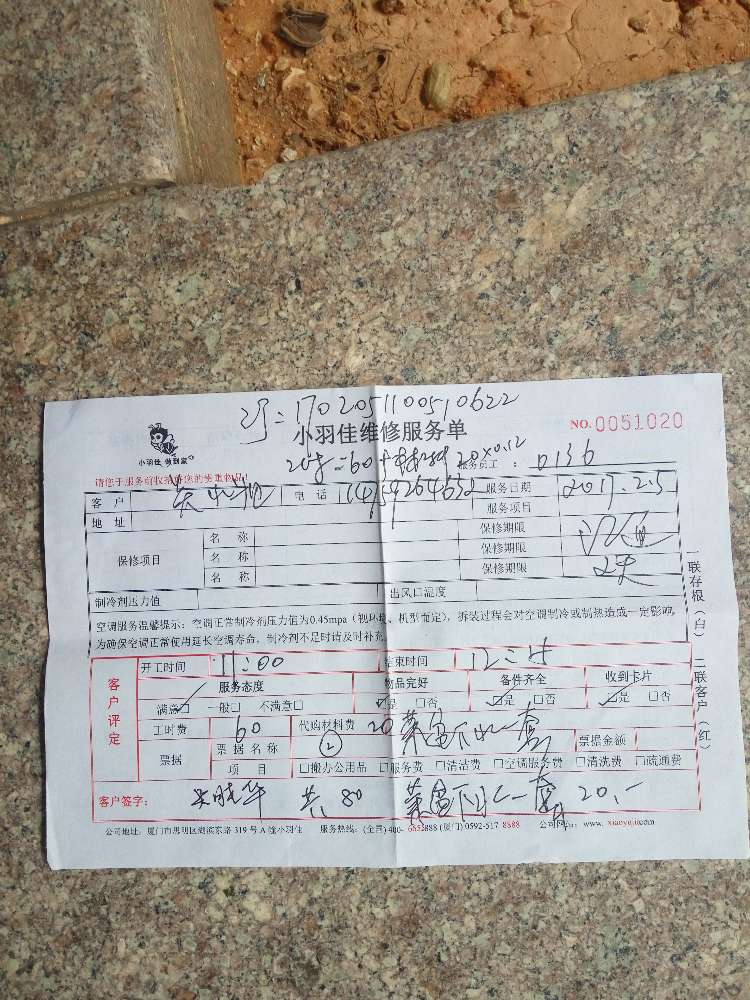 170205110051 0622
小羽佳维修服务单
NO. 0051020
小羽佳 做到家
服务员工： 0136
请您于服务前收拾好您的贵重物品
客 户 电 话 服务日期 2017.2.5
地 址 服务项目
保修项目 名 称 保修期限
名 称 保修期限
名 称 保修期限
制冷剂压力值 出风口温度
空调服务温馨提示：空调正常制冷剂压力值为0.45mpa（视环境、机型而定），拆装过程会对空调制冷或制热造成一定影响，
为确保空调正常使用延长空调寿命，制冷剂不足时请及时补充
一联存根（白） 二联客户（红）
客户评定
开工时间 11:00 结束时间
服务态度 物品完好 备件齐全 收到卡片
满意□ 一般□ 不满意□ □是 □否 □是 □否 □是 □否
工时费 60 代购材料费 20 菜盆下水一套 票据金额
票据 票 据 名 称 ②
项 目 □搬办公用品 □服务费 □清洁费 □空调服务费 □清洗费 □疏通费
客户签字： 共80 菜盆下水一套 20.-
公司地址：厦门市思明区湖滨东路 319 号 A 幢小羽佳 服务热线：(全国) 400- 6852888 (厦门) 0592-517 8888 公司网址：www. xiaoyujia.com